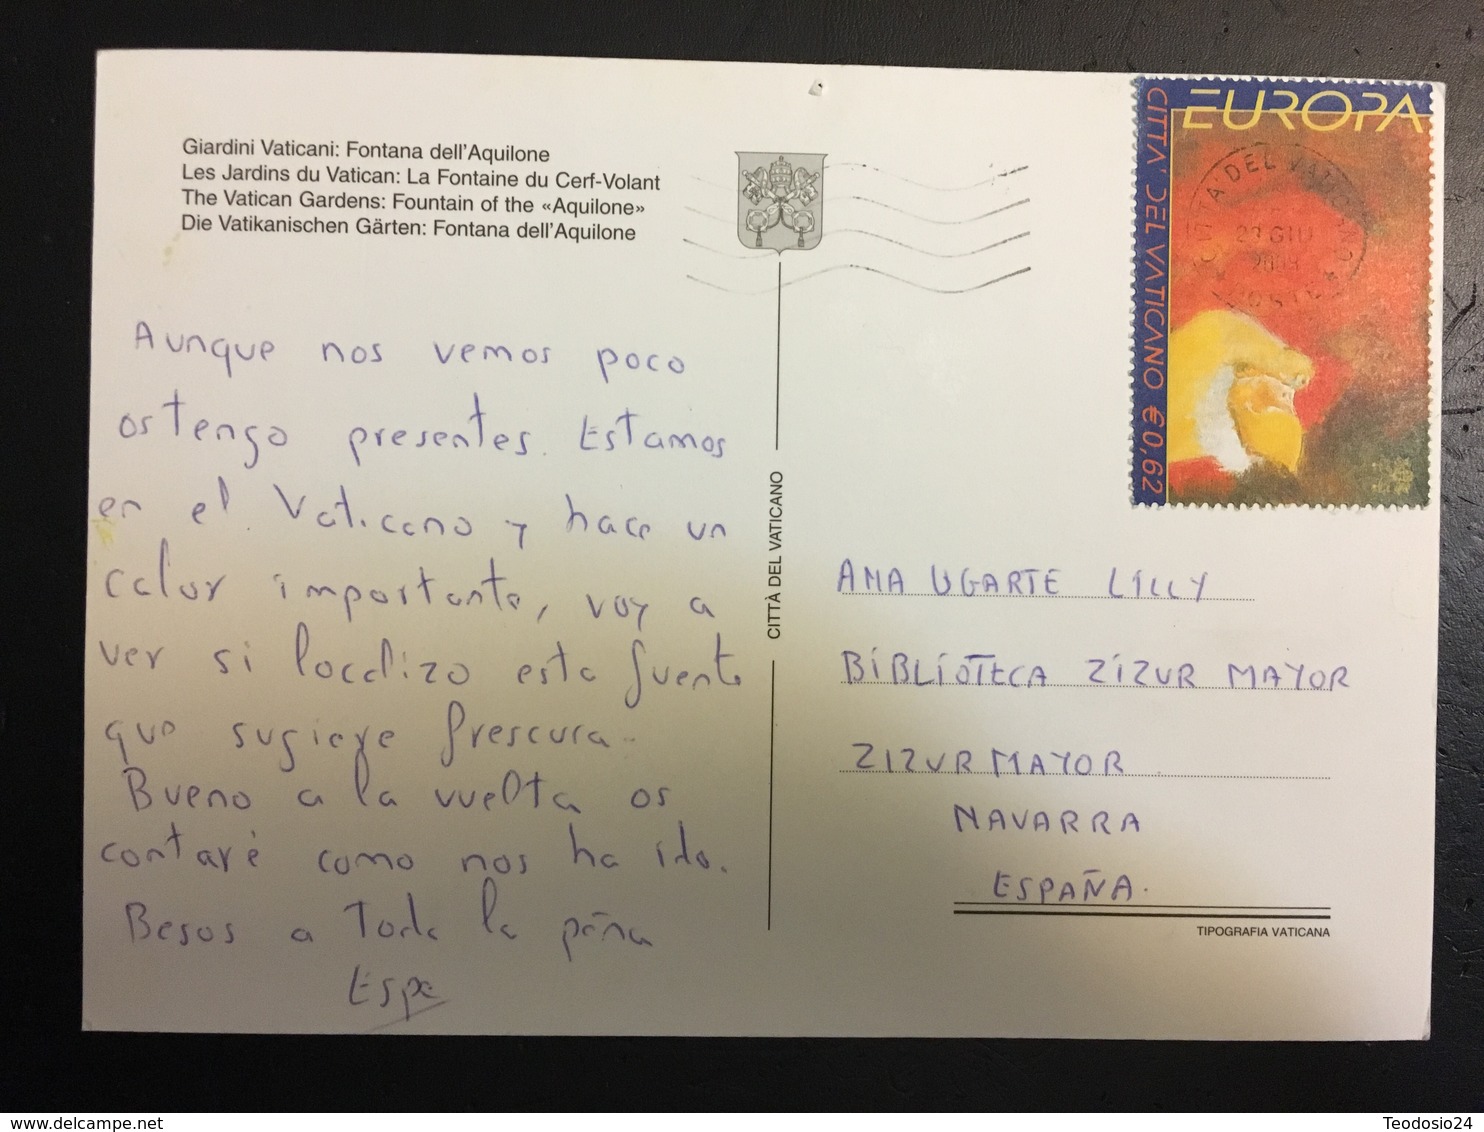 Giardini Vaticani: Fontana dell'Aquilone
Les Jardins du Vatican: La Fontaine du Cerf-Volant
The Vatican Gardens: Fountain of the «Aquilone»
Die Vatikanischen Gärten: Fontana dell'Aquilone
Aunque nos vemos poco
os tengo presentes. Estamos
en el Vaticano y hace un
calor importante, voy a
ver si localizo esta fuente
que sugiere frescura.
Bueno a la vuelta os
contaré como nos ha ido.
Besos a toda la peña
Espe
CITTÀ DEL VATICANO
EUROPA
CITTA' DEL VATICANO € 0,62
CITTA DEL VATICANO
GIU
POSTE
ANA UGARTE LILLY
BIBLIOTECA ZIZUR MAYOR
ZIZUR MAYOR
NAVARRA
ESPAÑA.
TIPOGRAFIA VATICANA
Teodosio24